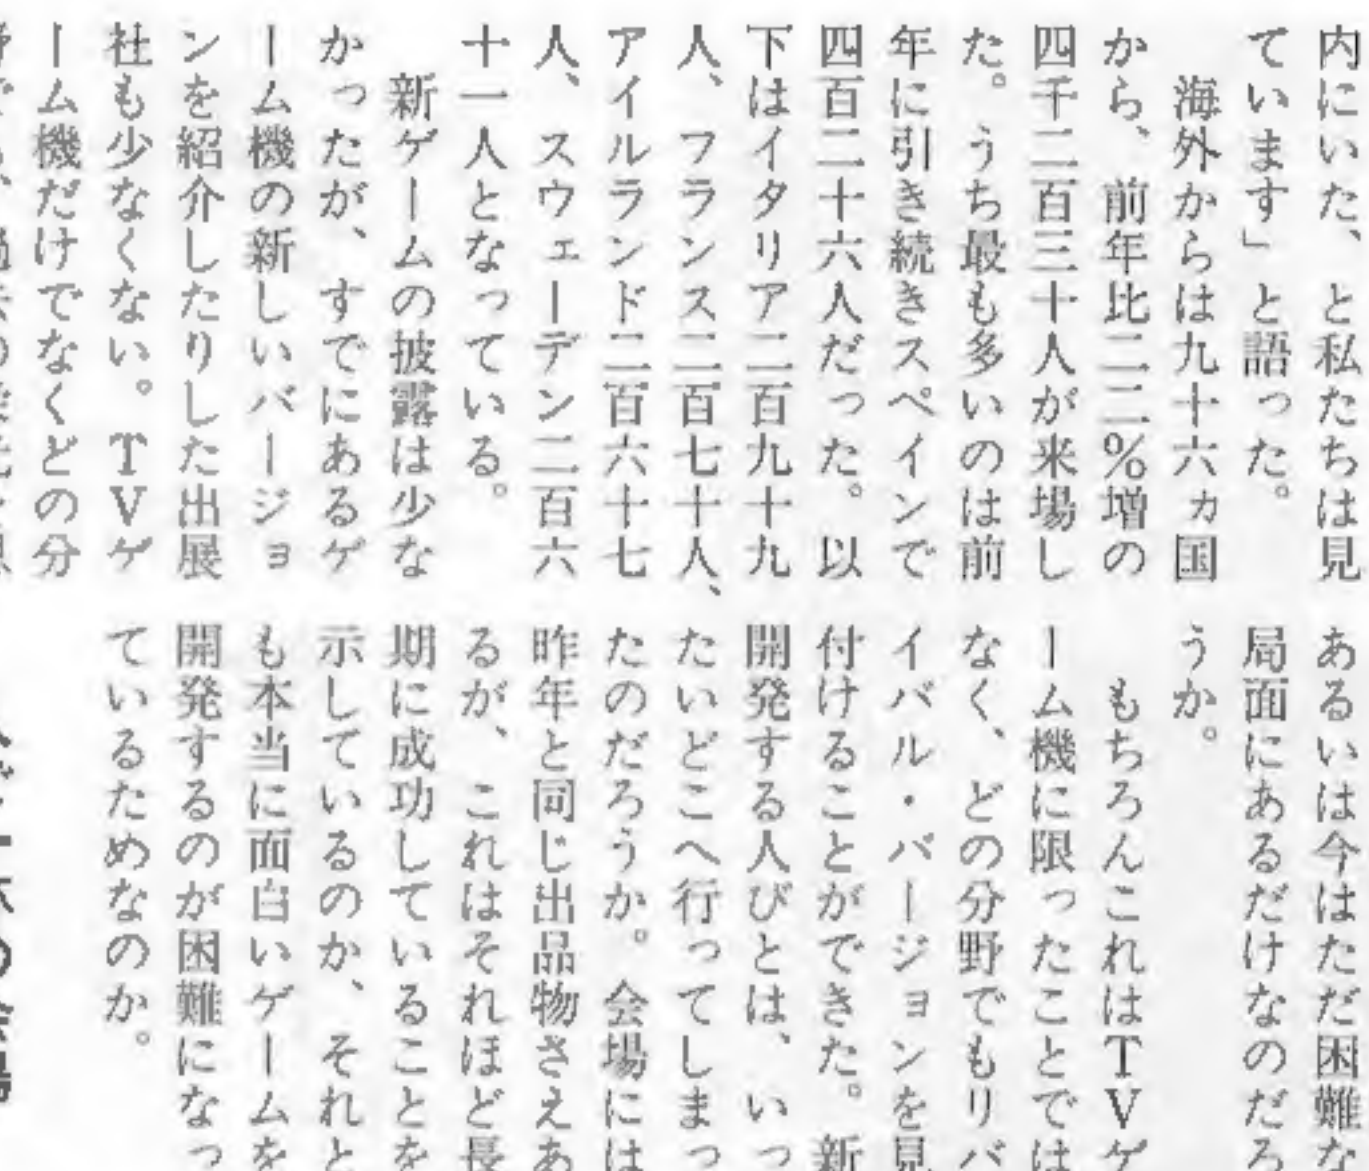 内にいた、と私たちは見
ています」と語った。
海外からは九十六ヵ国
から、前年比二二%増の
四千二百三十人が来場し
た。うち最も多いのは前
年に引き続きスペインで
四百二十六人だった。以
下はイタリア二百九十九
人、フランス二百七十人、
アイルランド二百六十七
人、スウェーデン二百六
十一人となっている。
新ゲームの披露は少な
かったが、すでにあるゲ
ーム機の新しいバージョ
ンを紹介したりした出展
社も少なくない。TVゲ
ーム機だけでなくどの分
あるいは今はただ困難な
局面にあるだけなのだろ
うか。
もちろんこれはTVゲ
ーム機に限ったことでは
なく、どの分野でもリバ
イバル・バージョンを見
付けることができた。新
開発する人びとは、いっ
たいどこへ行ってしまっ
たのだろうか。会場には
昨年と同じ出品物さえあ
るが、これはそれほど長
期に成功していることを
示しているのか、それと
も本当に面白いゲームを
開発するのが困難になっ
ているためなのか。